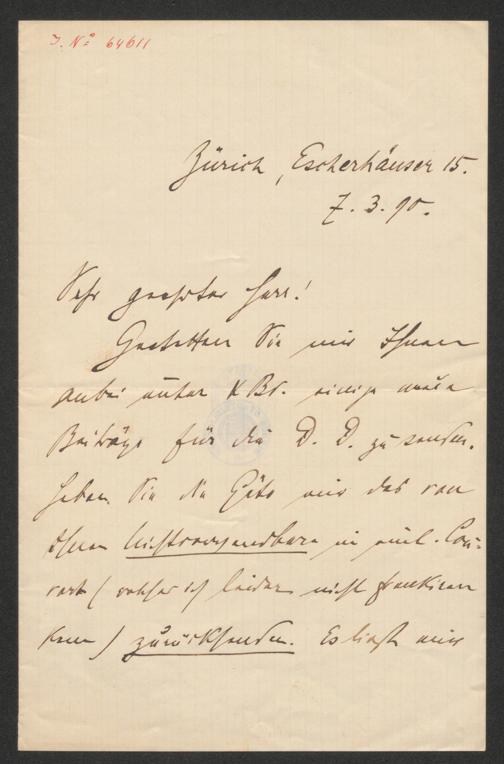 J. Nº 64611
Zürich, Escherhäuser 15.
7. 3. 90.
Sehr geehrter Herr!
Gestatten Sie mir Ihnen
anbei unter XBd. einige neue
Beiträge für die D. D. zu senden.
Haben Sie die Güte mir das von
Ihnen Nichtverwendbare in einl. Cou-
vert (welches ich leider nicht frankiren
kann) zurücksenden. Es liegt mir